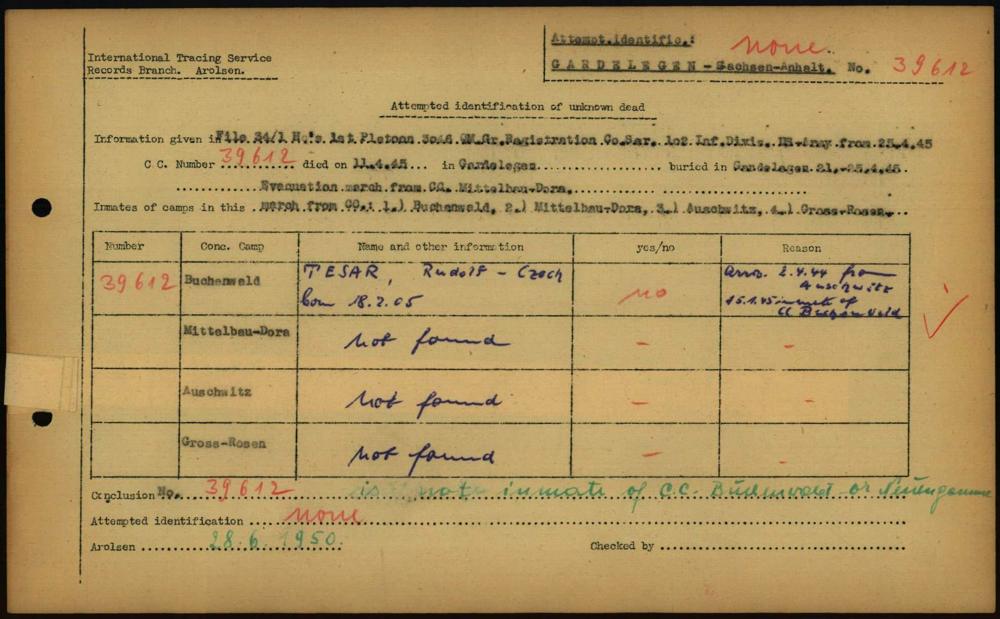 International Tracing Service
Records Branch. Arolsen.
Attempt.identific.: none.
GARDELEGEN - Sachsen-Anhalt. No. 39612
Attempted identification of unknown dead
Information given in File 24/1 Hq's 1st Platoon 3046 QM.Gr.Registration Co.Ser. 102 Inf.Divis. US-Army from 25.4.45
C C. Number 39612 died on 11.4.45 in Gardelegen buried in Gardelegen 21.-25.4.45.
Evacuation march from CC. Mittelbau-Dora.
Inmates of camps in this march from CC.: 1.) Buchenwald, 2.) Mittelbau-Dora, 3.) Auschwitz, 4.) Gross-Rosen.
Number Conc. Camp Name and other information yes/no Reason
39612 Buchenwald TESAR, Rudolf - Czech born 18.2.05 no arriv. 2.4.44 from Auschwitz 15.1.45 inmate of CC Buchenwald
Mittelbau-Dora not found - -
Auschwitz not found - -
Gross-Rosen not found - -
Conclusion No. 39612 is not inmate of C.C. Buchenwald or Neuengamme
Attempted identification none
Arolsen 28.6.1950. Checked by